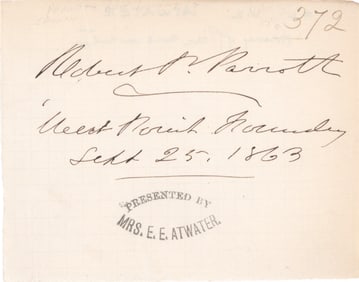 372
Robert P. Parrott
West Point Foundry
Sept 25. 1863
PRESENTED BY
MRS. E. E. ATWATER.